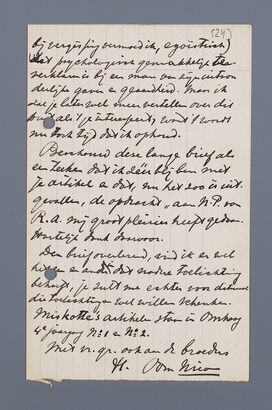 (24)
bij vergissing vermoed ik, egoïstisch)
dat psychologisch gemakkelijk te
verklaren is bij een man van zijn uitzon
derlijke gaven en gezondheid. Maar ik
zal je later wel meer vertellen over die
als 't je interesseert, want 't wordt
nu tijd dat ik ophoud.
Beschouw deze lange brief als
een teeken dat ik zéér blij ben met
je artikel en dat, nu het zoo is uit-
gevallen, de opdracht "aan N.P. van
R.A. mij groot pleizier heeft gedaan.
Hartelijk dank daarvoor.
Den brief overlezend, vind ik er wel
het een en ander dat nadere toelichting
behoeft, je zult me echter voor ditmaal
die toelichtingen wel willen schenken.
Miskotte's artikelen staan in Omhoog
4e jaargang No 1 en No 2.
Met vr. gr. ook aan de broeders
Oom Nico